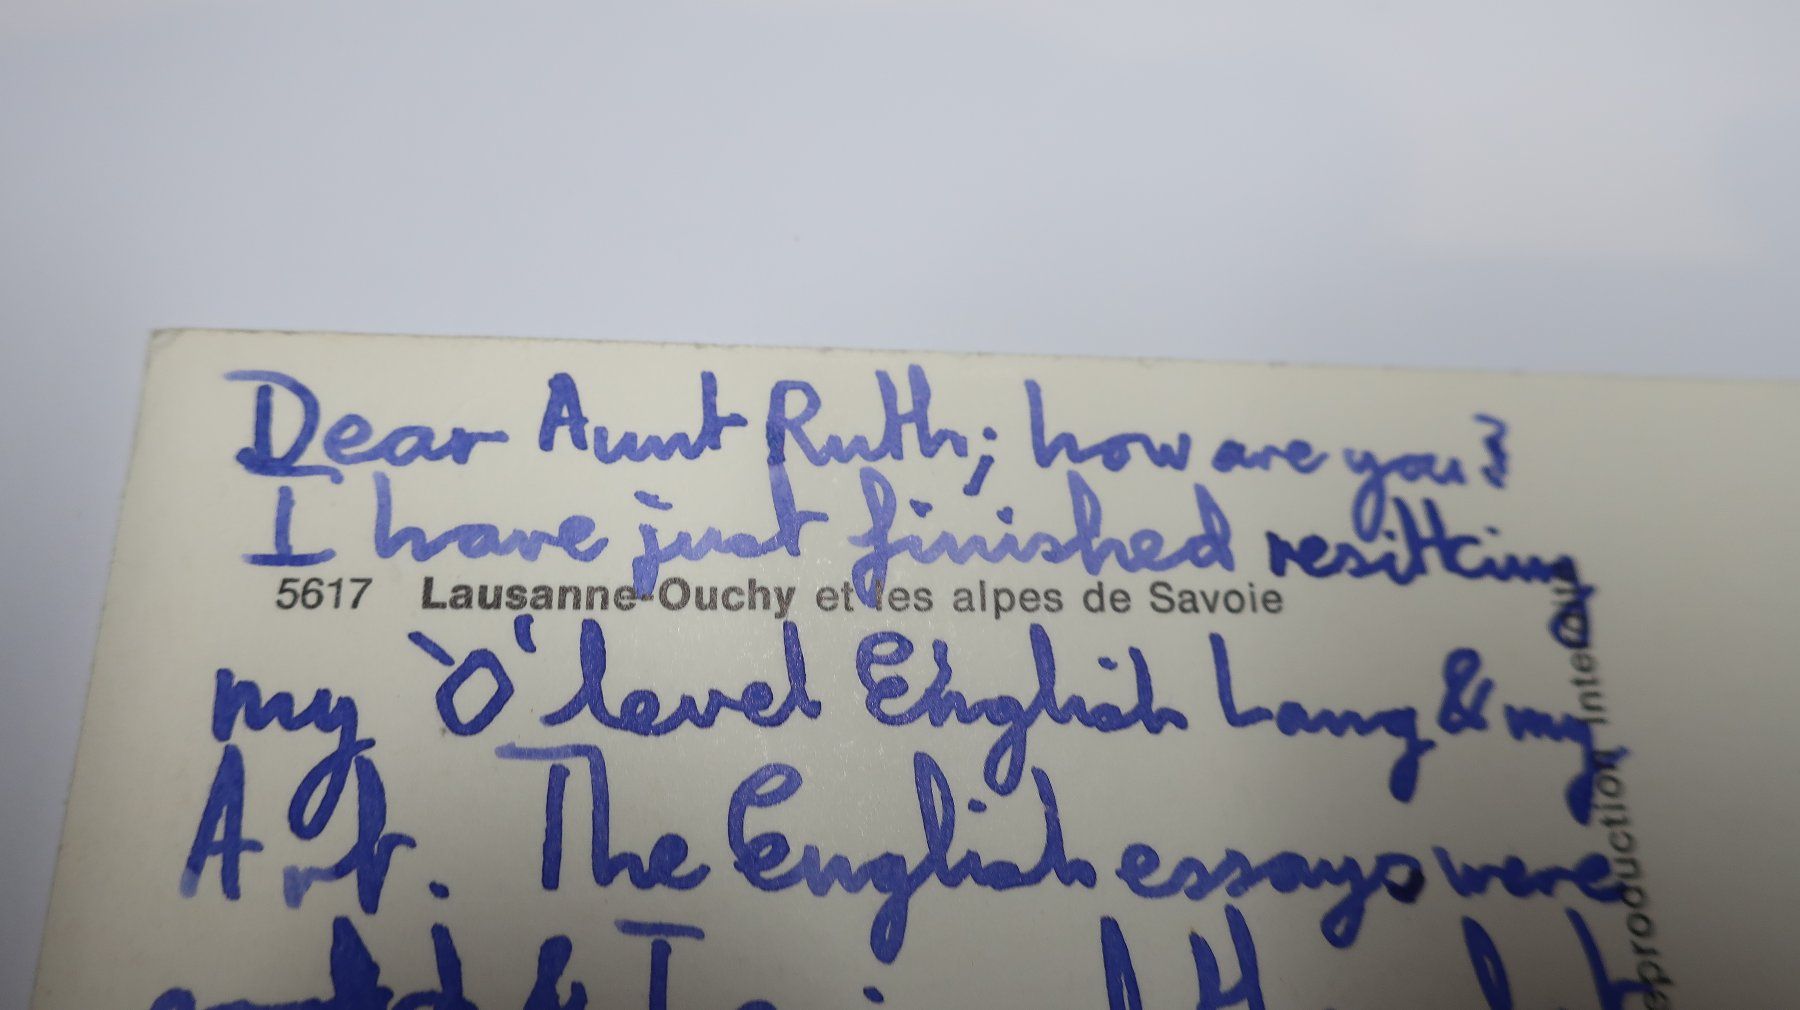 Dear Aunt Ruth; how are you?
I have just finished resitting
5617 Lausanne-Ouchy et les alpes de Savoie
my 'O' level English Lang & my
Art. The English essays were
& I
eproduction inte